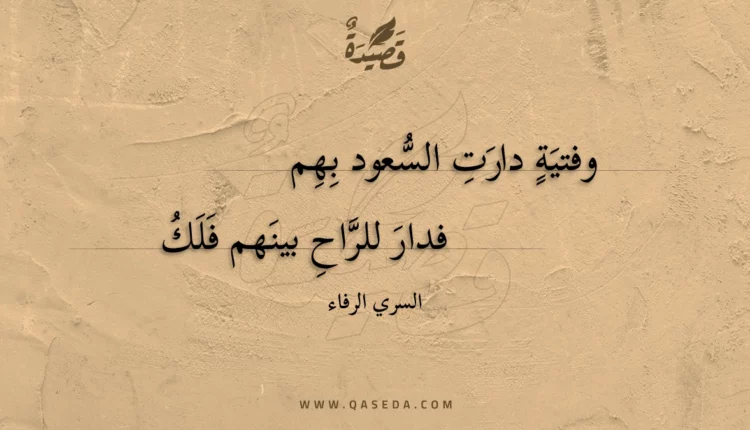 قَصِيدَةٌ
وفتيَةٍ دارَتِ السُّعود بِهِم
فدارَ للرَّاحِ بينَهم فَلَكُ
السري الرفاء
WWW.QASEDA.COM